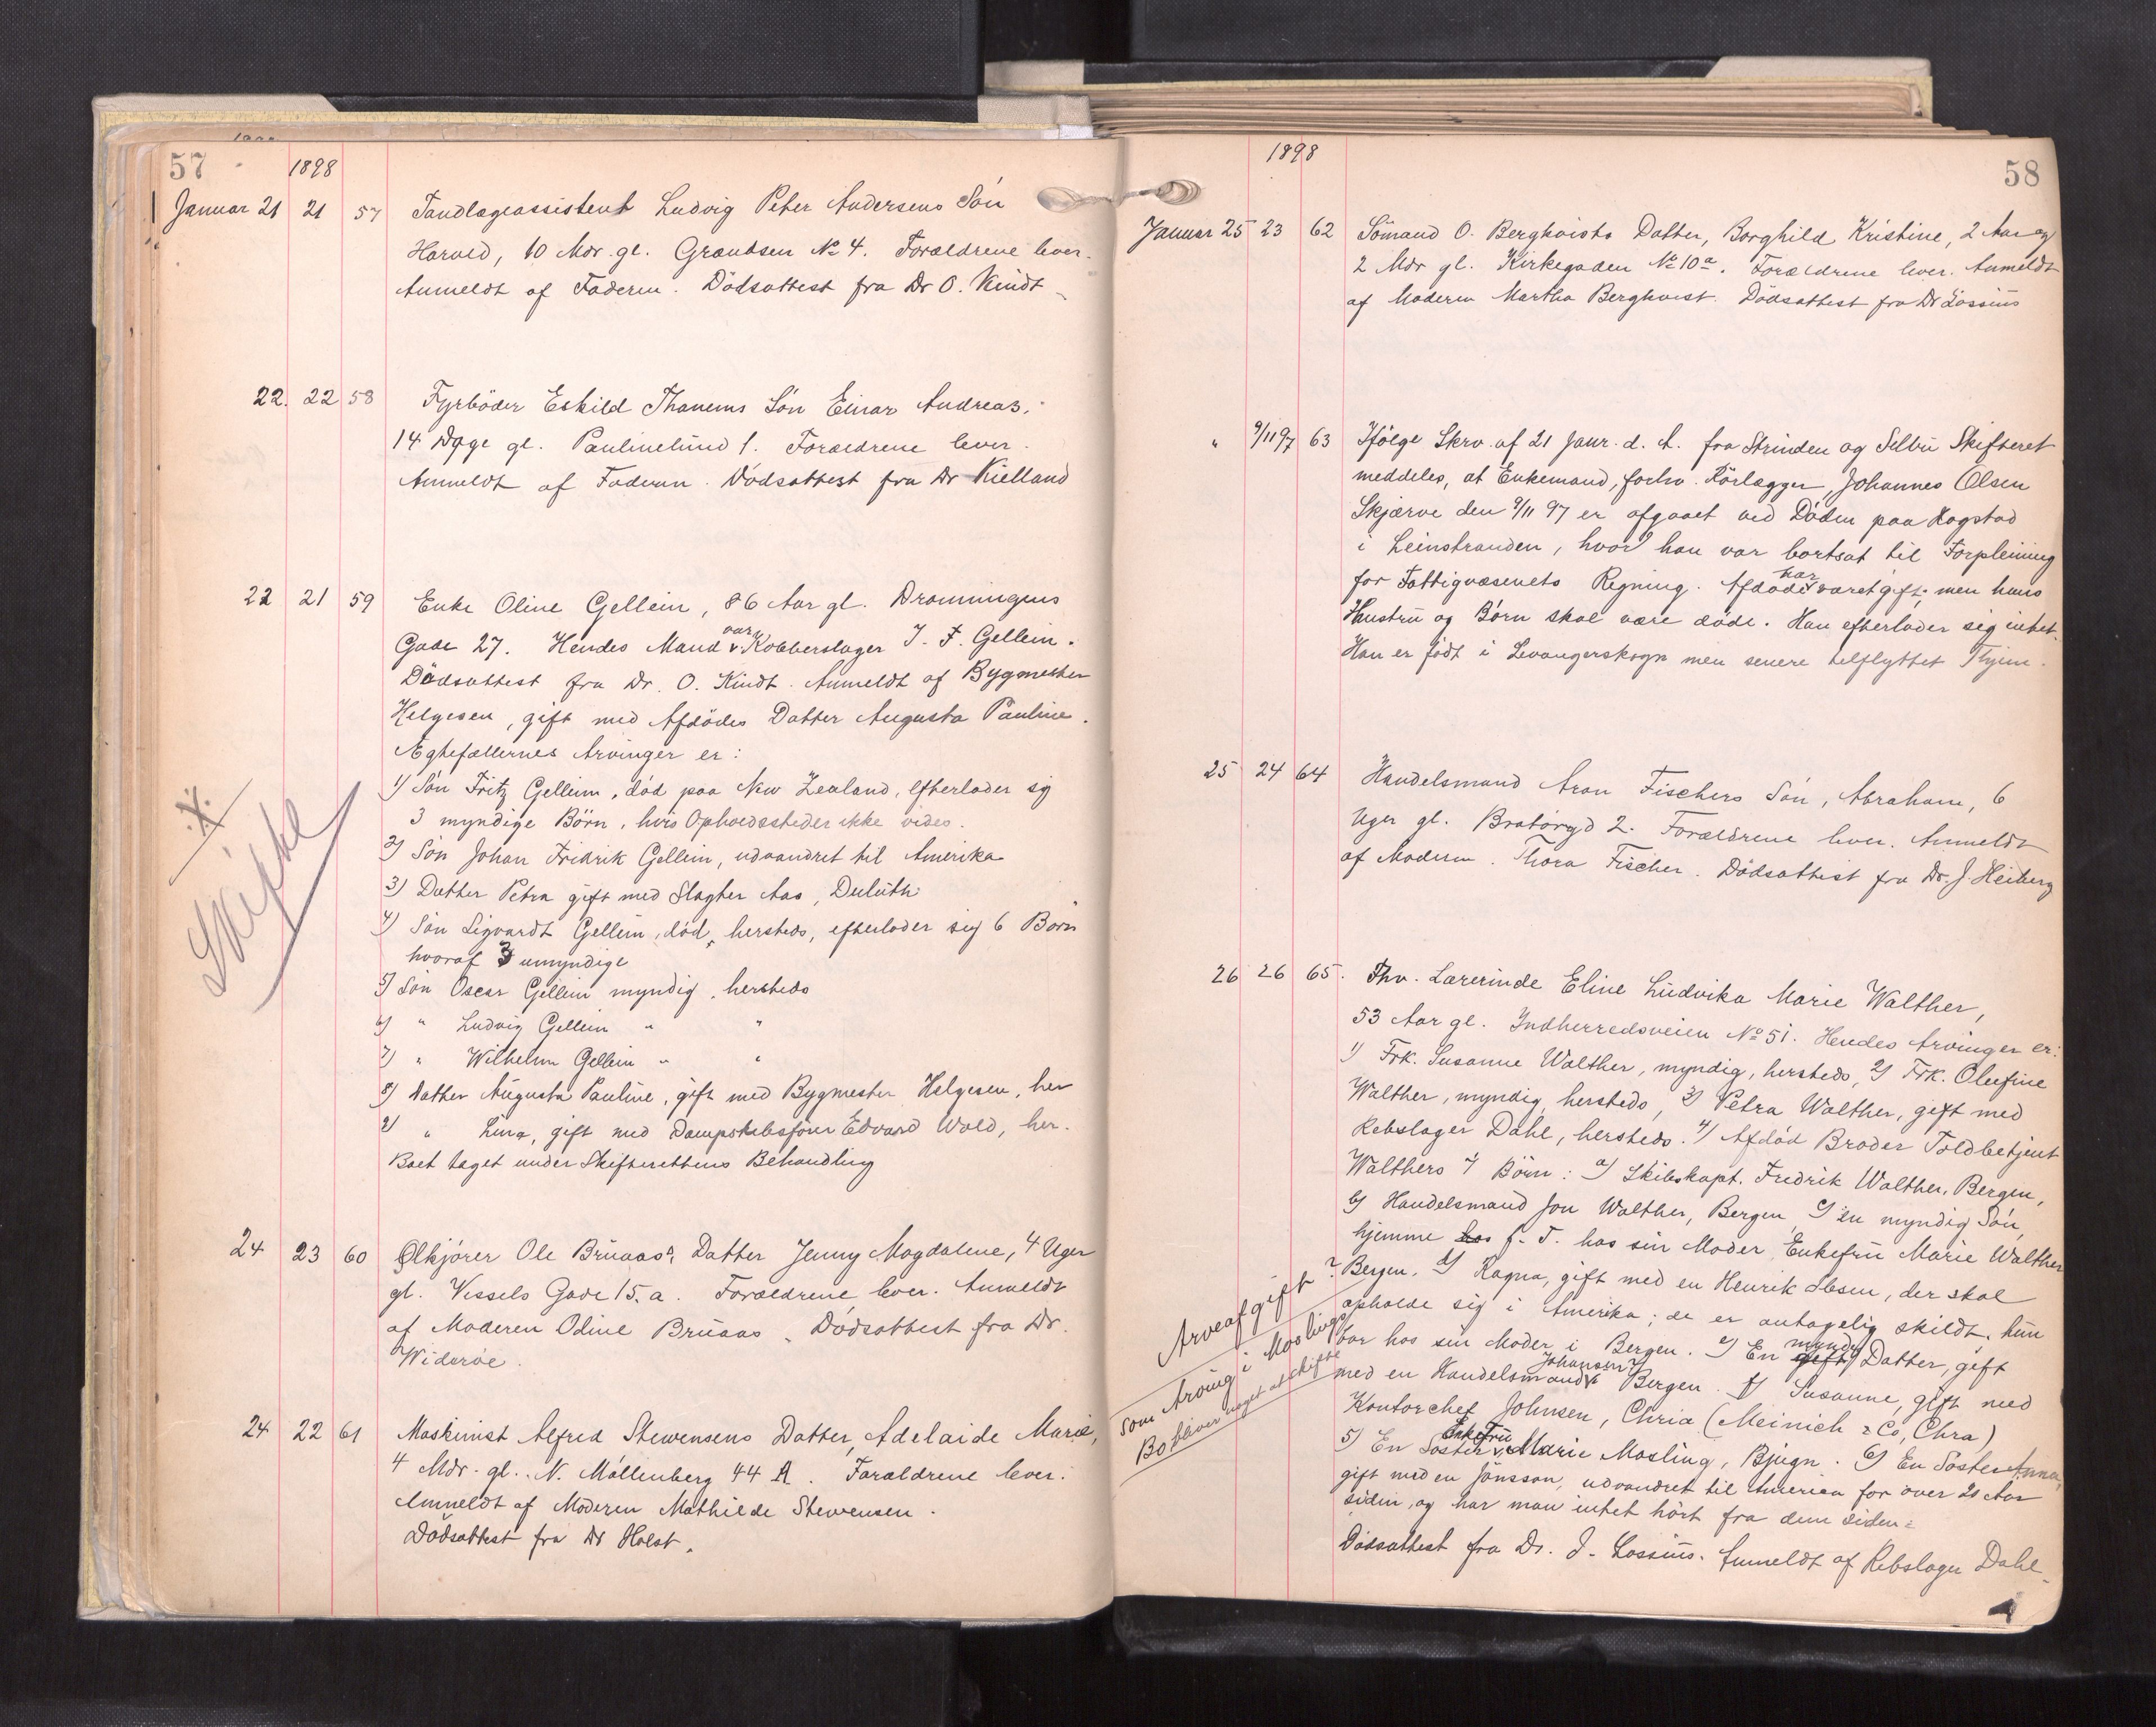 57
1898
Januar 21 21 57 Tandlægeassistent Ludvig Peter Andersens Søn
Harald, 10 Mdr. gl. Grandsen No 4. Forældrene lever.
Anmeldt af Faderen. Dödsattest fra Dr O. Kindt
22. 22 58 Fyrböder Eskild Thanems Sön Einar Andreas,
14 Dage gl. Paulinelund 1. Forældrene lever.
Anmeldt af Faderen. Dödsattest fra Dr Kielland
22 21 59 Enke Oline Gellein, 86 Aar gl. Dronningens
Gade 27. Hendes Mand var Kobberslager J. F. Gellein.
Dödsattest fra Dr. O. Kindt. Anmeldt af Bygmester
Helgesen, gift med Afdödes Datter Augusta Pauline.
Ægtefællernes Arvinger er:
1) Sön Fritz Gellein, död paa New Zealand, efterlader sig
3 myndige Börn, hvis Opholdssteder ikke vides.
2) Sön Johan Fridrik Gellein, udvandret til Amerika
3) Datter Petra gift med Slagter Aas, Duluth
4) Sön Sigvardt Gellein, död, hersteds, efterlader sig 6 Börn
hvoraf 3 umyndige
5) Sön Oscar Gellein myndig, hersteds
6) " Ludvig Gellein " "
7) " Wilhelm Gellein " "
8) Datter Augusta Pauline, gift med Bygmester Helgesen, her
9) " Lina, gift med Dampskibsförer Edvard Wold, her.
Boet taget under Skifterettens Behandling
Skifte
24 23 60 Ølkjörer Ole Bruaas' Datter Jenny Magdalene, 4 Uger
gl. Vessels Gade 15. a. Forældrene lever. Anmeldt
af Moderen Odine Bruaas. Dödsattest fra Dr.
Wideröe.
24 22 61 Maskinist Alfred Stewensens Datter, Adelaide Marie,
4 Mdr. gl. N. Möllenberg 44 A. Forældrene lever.
Anmeldt af Moderen Mathilde Stewensen.
Dödsattest fra Dr Holst.
1898
58
Januar 25 23 62 Sömand O. Berghvists Datter, Borghild Kristine, 2 Aar og
2 Mdr gl. Kirkegaden No 10a. Forældrene lever. Anmeldt
af Moderen Martha Berghvist. Dödsattest fra Dr Lossius
" 9/11 97 63 Ifölge Skrv. af 21 Janr. d. A. fra Strinden og Selbu Skifteret
meddeles, at Enkemand, forhv. Rörlægger, Johannes Olsen
Skjærve den 9/11 97 er afgaaet ved Döden paa Hagstad
i Leinstranden, hvor han var bortsat til Forpleining
for Fattigvæsenets Regning. Afdöde har været gift; men hans
Hustru og Börn skal være döde. Han efterlader sig intet.
Han er födt i Levangerskogn men senere tilflyttet Thjem.
25 24 64 Handelsmand Aron Fischers Sön, Abraham, 6
Uger gl. Bratörgd 2. Forældrene lever. Anmeldt
af Moderen. Thora Fischer. Dödsattest fra Dr. J. Heiberg
26 26 65. Fhv. Lærerinde Eline Ludvika Marie Walther,
53 Aar gl. Indherredsveien No 51. Hendes Arvinger er:
1) Frk. Susanne Walther, myndig, hersteds, 2) Frk. Olufine
Walther, myndig, hersteds, 3) Petra Walther, gift med
Rebslager Dahl, hersteds. 4) Afdöd Broder Toldbetjent
Walthers 7 Börn: a) Skibskapt. Fredrik Walther, Bergen,
b) Handelsmand Jon Walther, Bergen, c) en myndig Sön,
hjemme hos f. T. hos sin Moder, Enkefru Marie Walther
Bergen. d) Ragna, gift med en Henrik Ibsen, der skal
opholde sig i Amerika; de er antagelig skildt, hun
bor hos sin Moder i Bergen. e) En gift myndig Datter, gift
med en Handelsmand Johansen i Bergen. f) Susanne, gift med
Kontorchef Johnsen, Chria (Meinich & Co, Chra)
5) En Söster, Enkefru Marie Mosling, Bjugn. 6) En Söster Anna,
gift med en Jönsson, udvandret til Amerika for over 20 Aar
siden, og har man intet hört fra dem siden.
Dödsattest fra Dr. J. Lossius. Anmeldt af Rebslager Dahl.
Arveafgift?
Som Arving i Moslings
Bo bliver noget at skifte